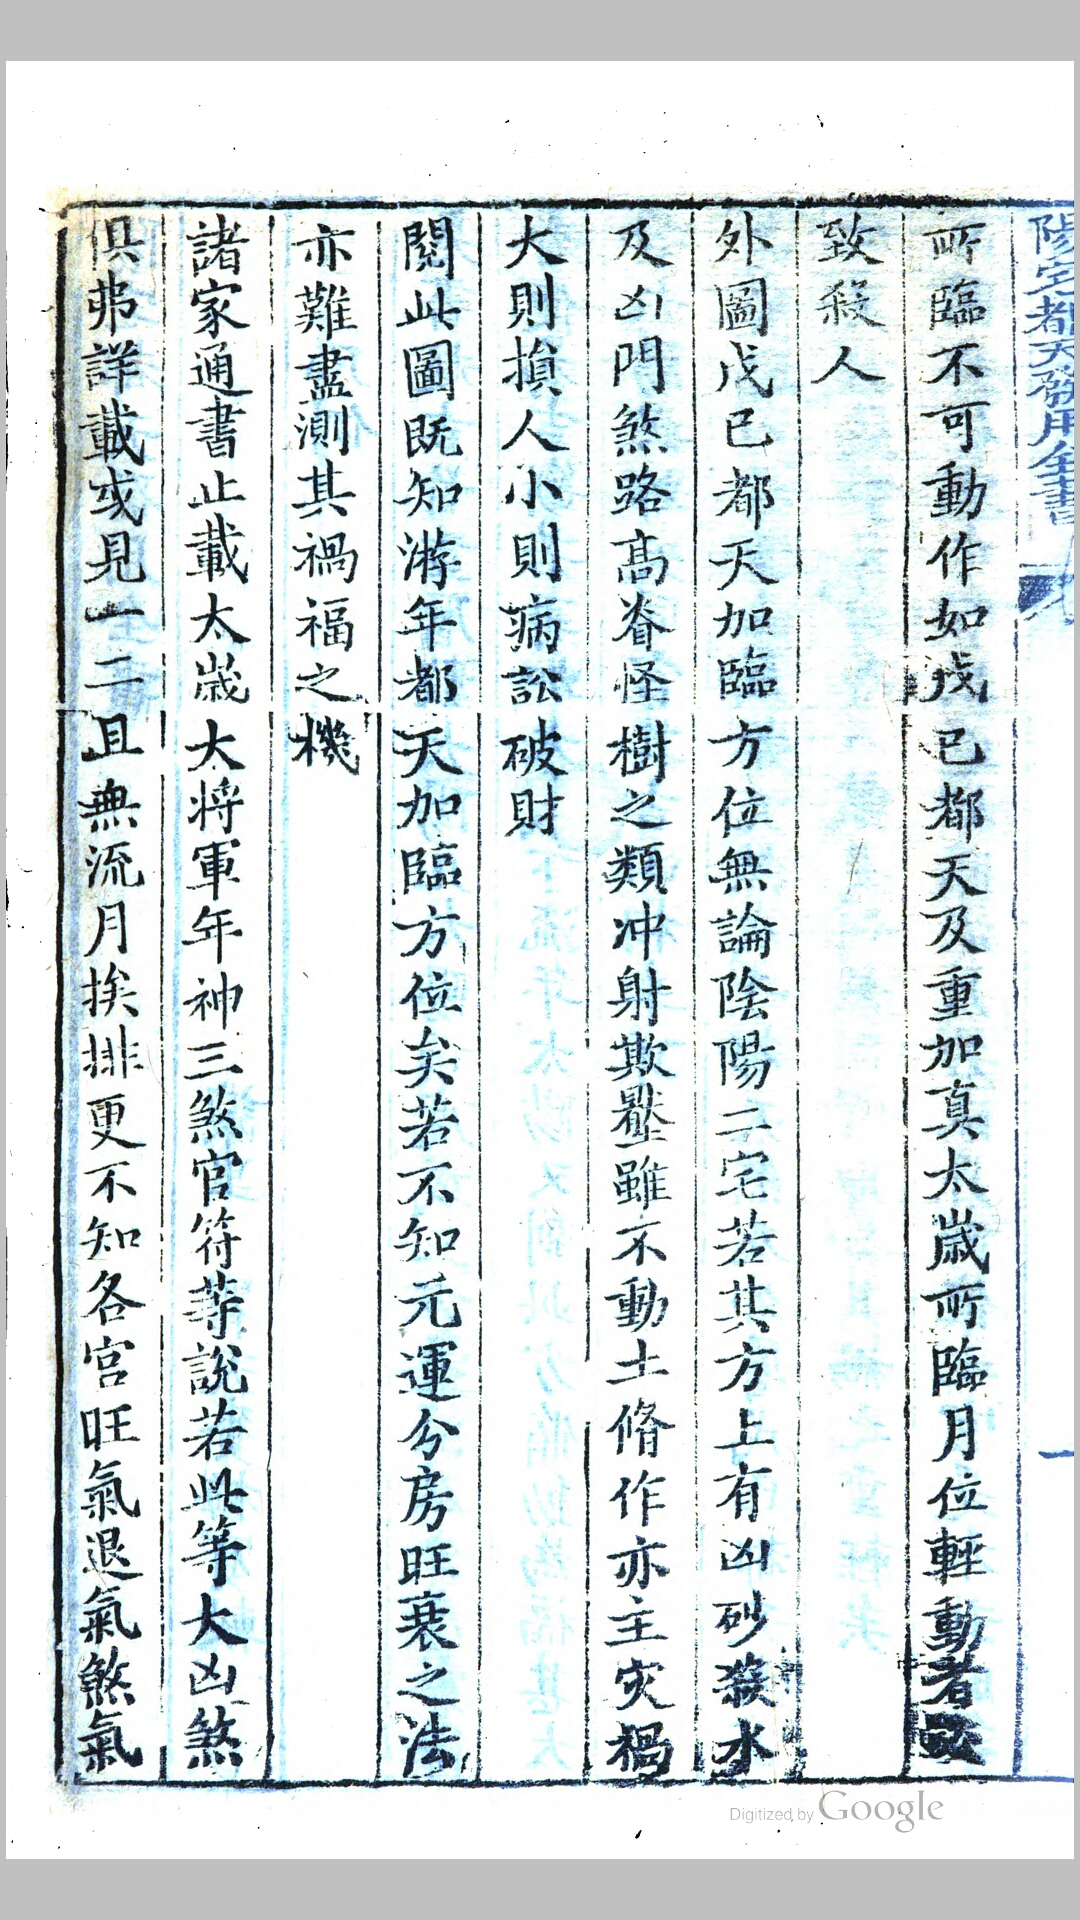 陽宅都天發用全書
所臨不可動作如戊已都天及重加真太歲所臨月位輕動者
致殺人
外圖戊已都天加臨方位無論陰陽二宅若其方上有凶砂殺水
及凶門煞路高脊怪樹之類冲射欺壓雖不動土脩作亦主灾禍
大則損人小則病訟破財
閱此圖既知游年都天加臨方位矣若不知元運分房旺衰之法
亦難盡測其禍福之機
諸家通書止載太歲太將軍年神三煞官符等說若此等大凶煞
俱弗詳載或見一二且無流月挨排更不知各宮旺氣退氣煞氣
Digitized by Google